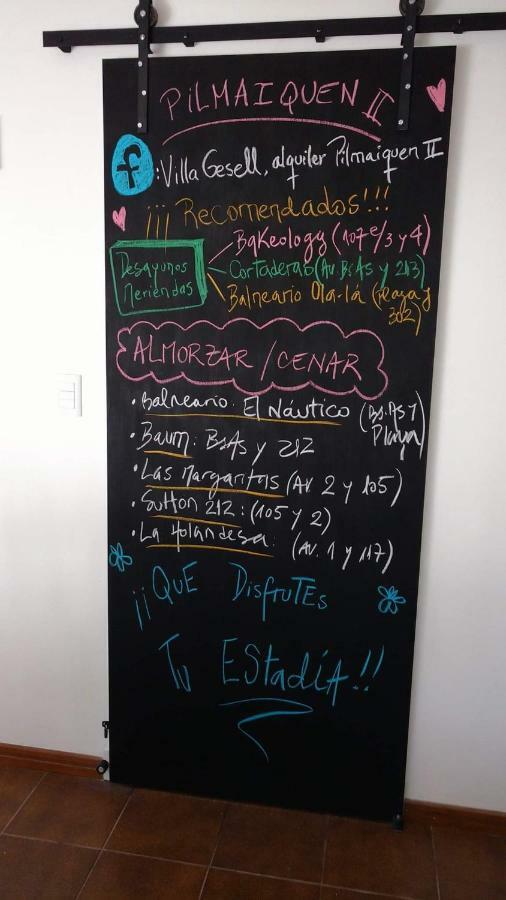 PILMAIQUEN II
f : Villa Gesell, alquiler Pilmaiquen II
¡¡¡ Recomendados!!!
Desayunos
Meriendas
Bakeology (107 e/3 y 4)
Cortaderas (Av. BsAs y 213)
Balneario Ola-lá (playa y
302)
ALMORZAR / CENAR
• Balneario: El Náutico (Bs.As y
Playa)
• Baum: BsAs y 212
• Las Margaritas (Av. 2 y 105)
• Sutton 212: (105 y 2)
• La Holandesa: (Av. 1 y 117)
¡¡QUE DisfruTEs
Tu EStadíA!!